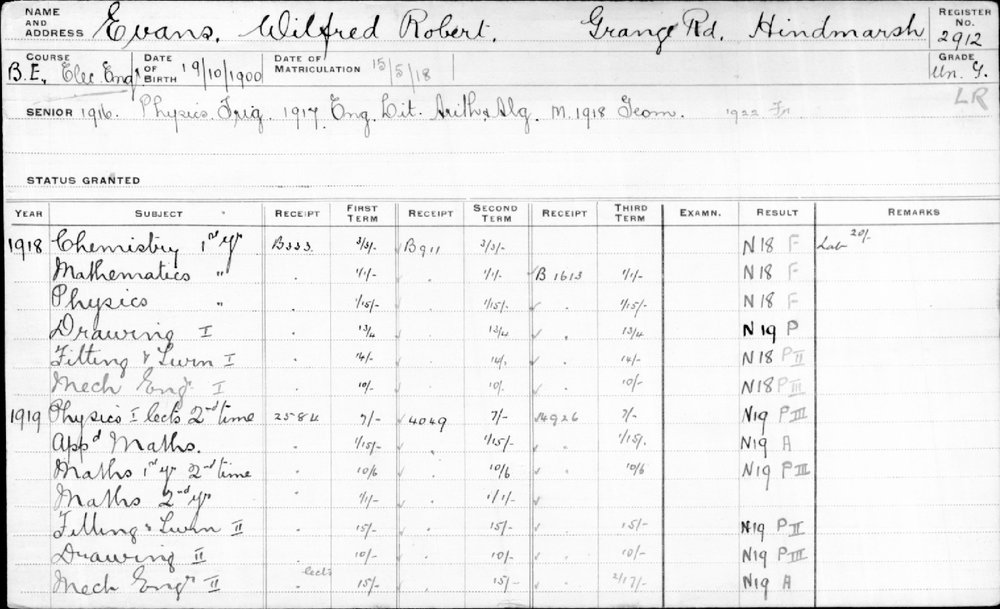 NAME AND ADDRESS Evans, Wilfred Robert. Grange Rd, Hindmarsh REGISTER No. 2912
COURSE B.E, Elec. Eng. DATE OF BIRTH 19/10/1900 DATE OF MATRICULATION 15/5/18 GRADE Un. G.
LR
SENIOR 1916. Physics. Trig. 1917 Eng. Lit. Arith & Alg. M. 1918 Geom. 1922 Fr
STATUS GRANTED
YEAR SUBJECT RECEIPT FIRST TERM RECEIPT SECOND TERM RECEIPT THIRD TERM EXAMN. RESULT REMARKS
1918 Chemistry 1st yr B333. 3/3/- B911 3/3/- N18 F Lab 20/-
Mathematics " . 1/1/- . 1/1/- B1613 1/1/- N18 F
Physics " . 1/15/- . 1/15/- . 1/15/- N18 F
Drawing I . 13/4 . 13/4 . 13/4 N19 P
Fitting & Turn I . 14/- . 14/- . 14/- N18 PII
Mech Engr I . 10/- . 10/- . 10/- N18 PIII
1919 Physics I lects 2nd time 2584 7/- 4049 7/- 4926 7/- N19 PIII
Appd Maths. . 1/15/- . 1/15/- . 1/15/. N19 A
Maths 1st yr 2nd time . 10/6 . 10/6 . 10/6 N19 PIII
Maths 2nd yr . 1/1/- 1/1/-
Fitting & Turn II . 15/- . 15/- . 15/- N19 PII
Drawing II . 10/- . 10/- . 10/- N19 PIII
Mech Engr II lects 15/- 15/- 2/17/- N19 A